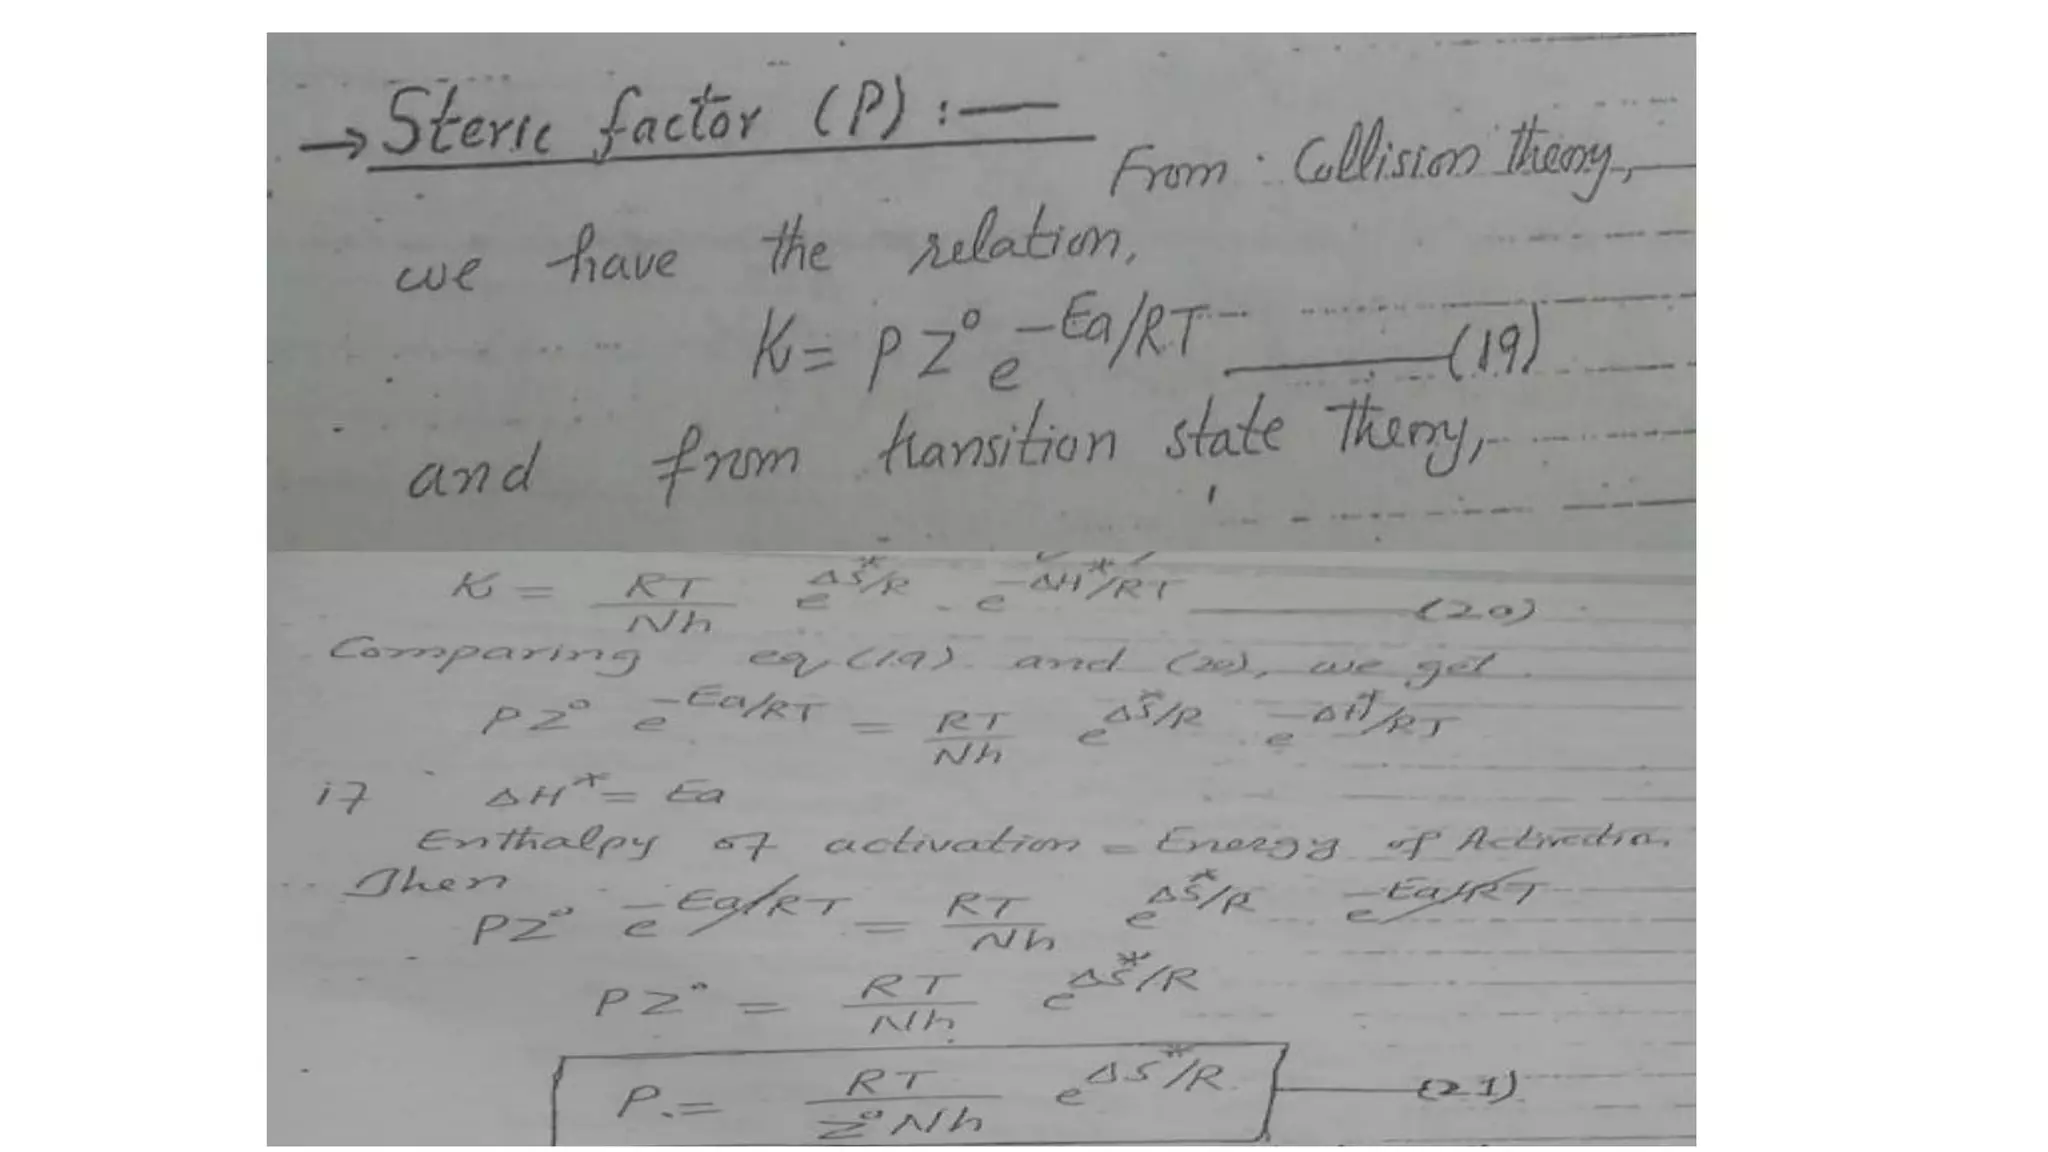 → Steric factor (P) :—
From Collision Theory,
we have the relation,
K = P Z° e^-Ea/RT ——— (19)
and from transition state Theory,
K = RT/Nh e^ΔS*/R . e^-ΔH*/RT ——— (20)
Comparing eq (19) and (20), we get.
PZ° e^-Ea/RT = RT/Nh e^ΔS*/R . e^-ΔH*/RT
if ΔH* = Ea
Enthalpy of activation = Energy of Activation.
Then
PZ° e^-Ea/RT = RT/Nh e^ΔS*/R e^-Ea/RT
PZ° = RT/Nh e^ΔS*/R
P. = RT/Z°Nh e^ΔS*/R ——— (21)